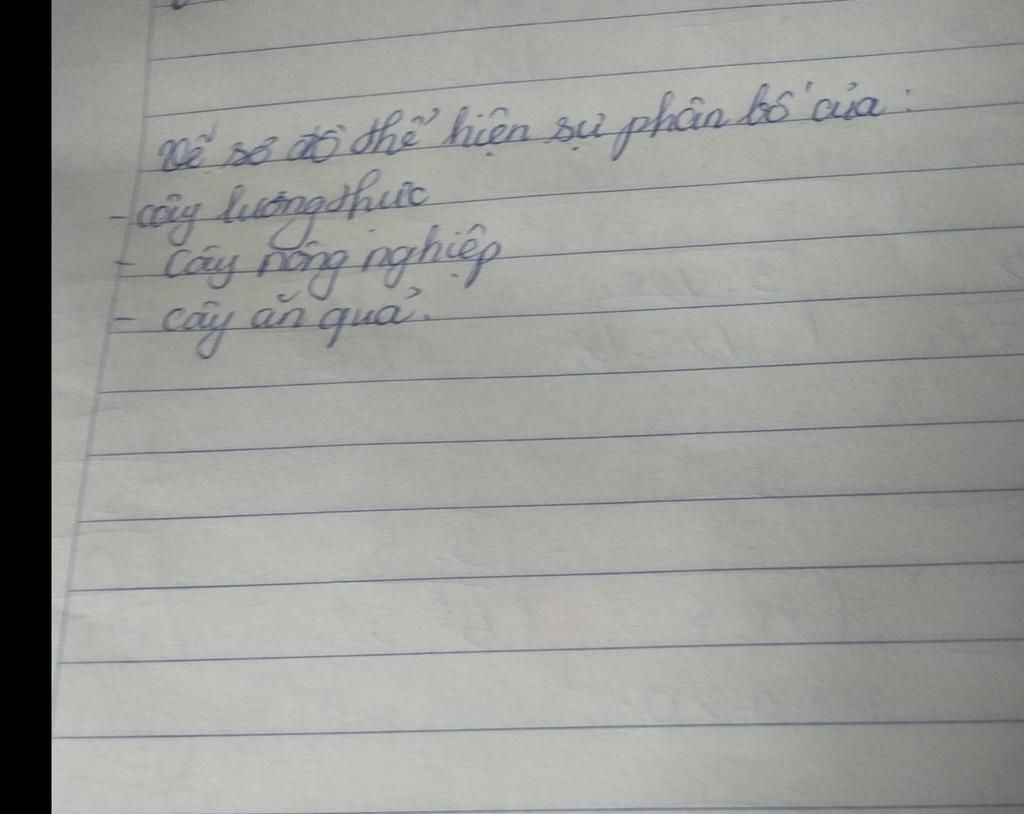 Vẽ sơ đồ thể hiện sự phân bố của :
- cây lương thực
- Cây nông nghiệp
- cây ăn quả.